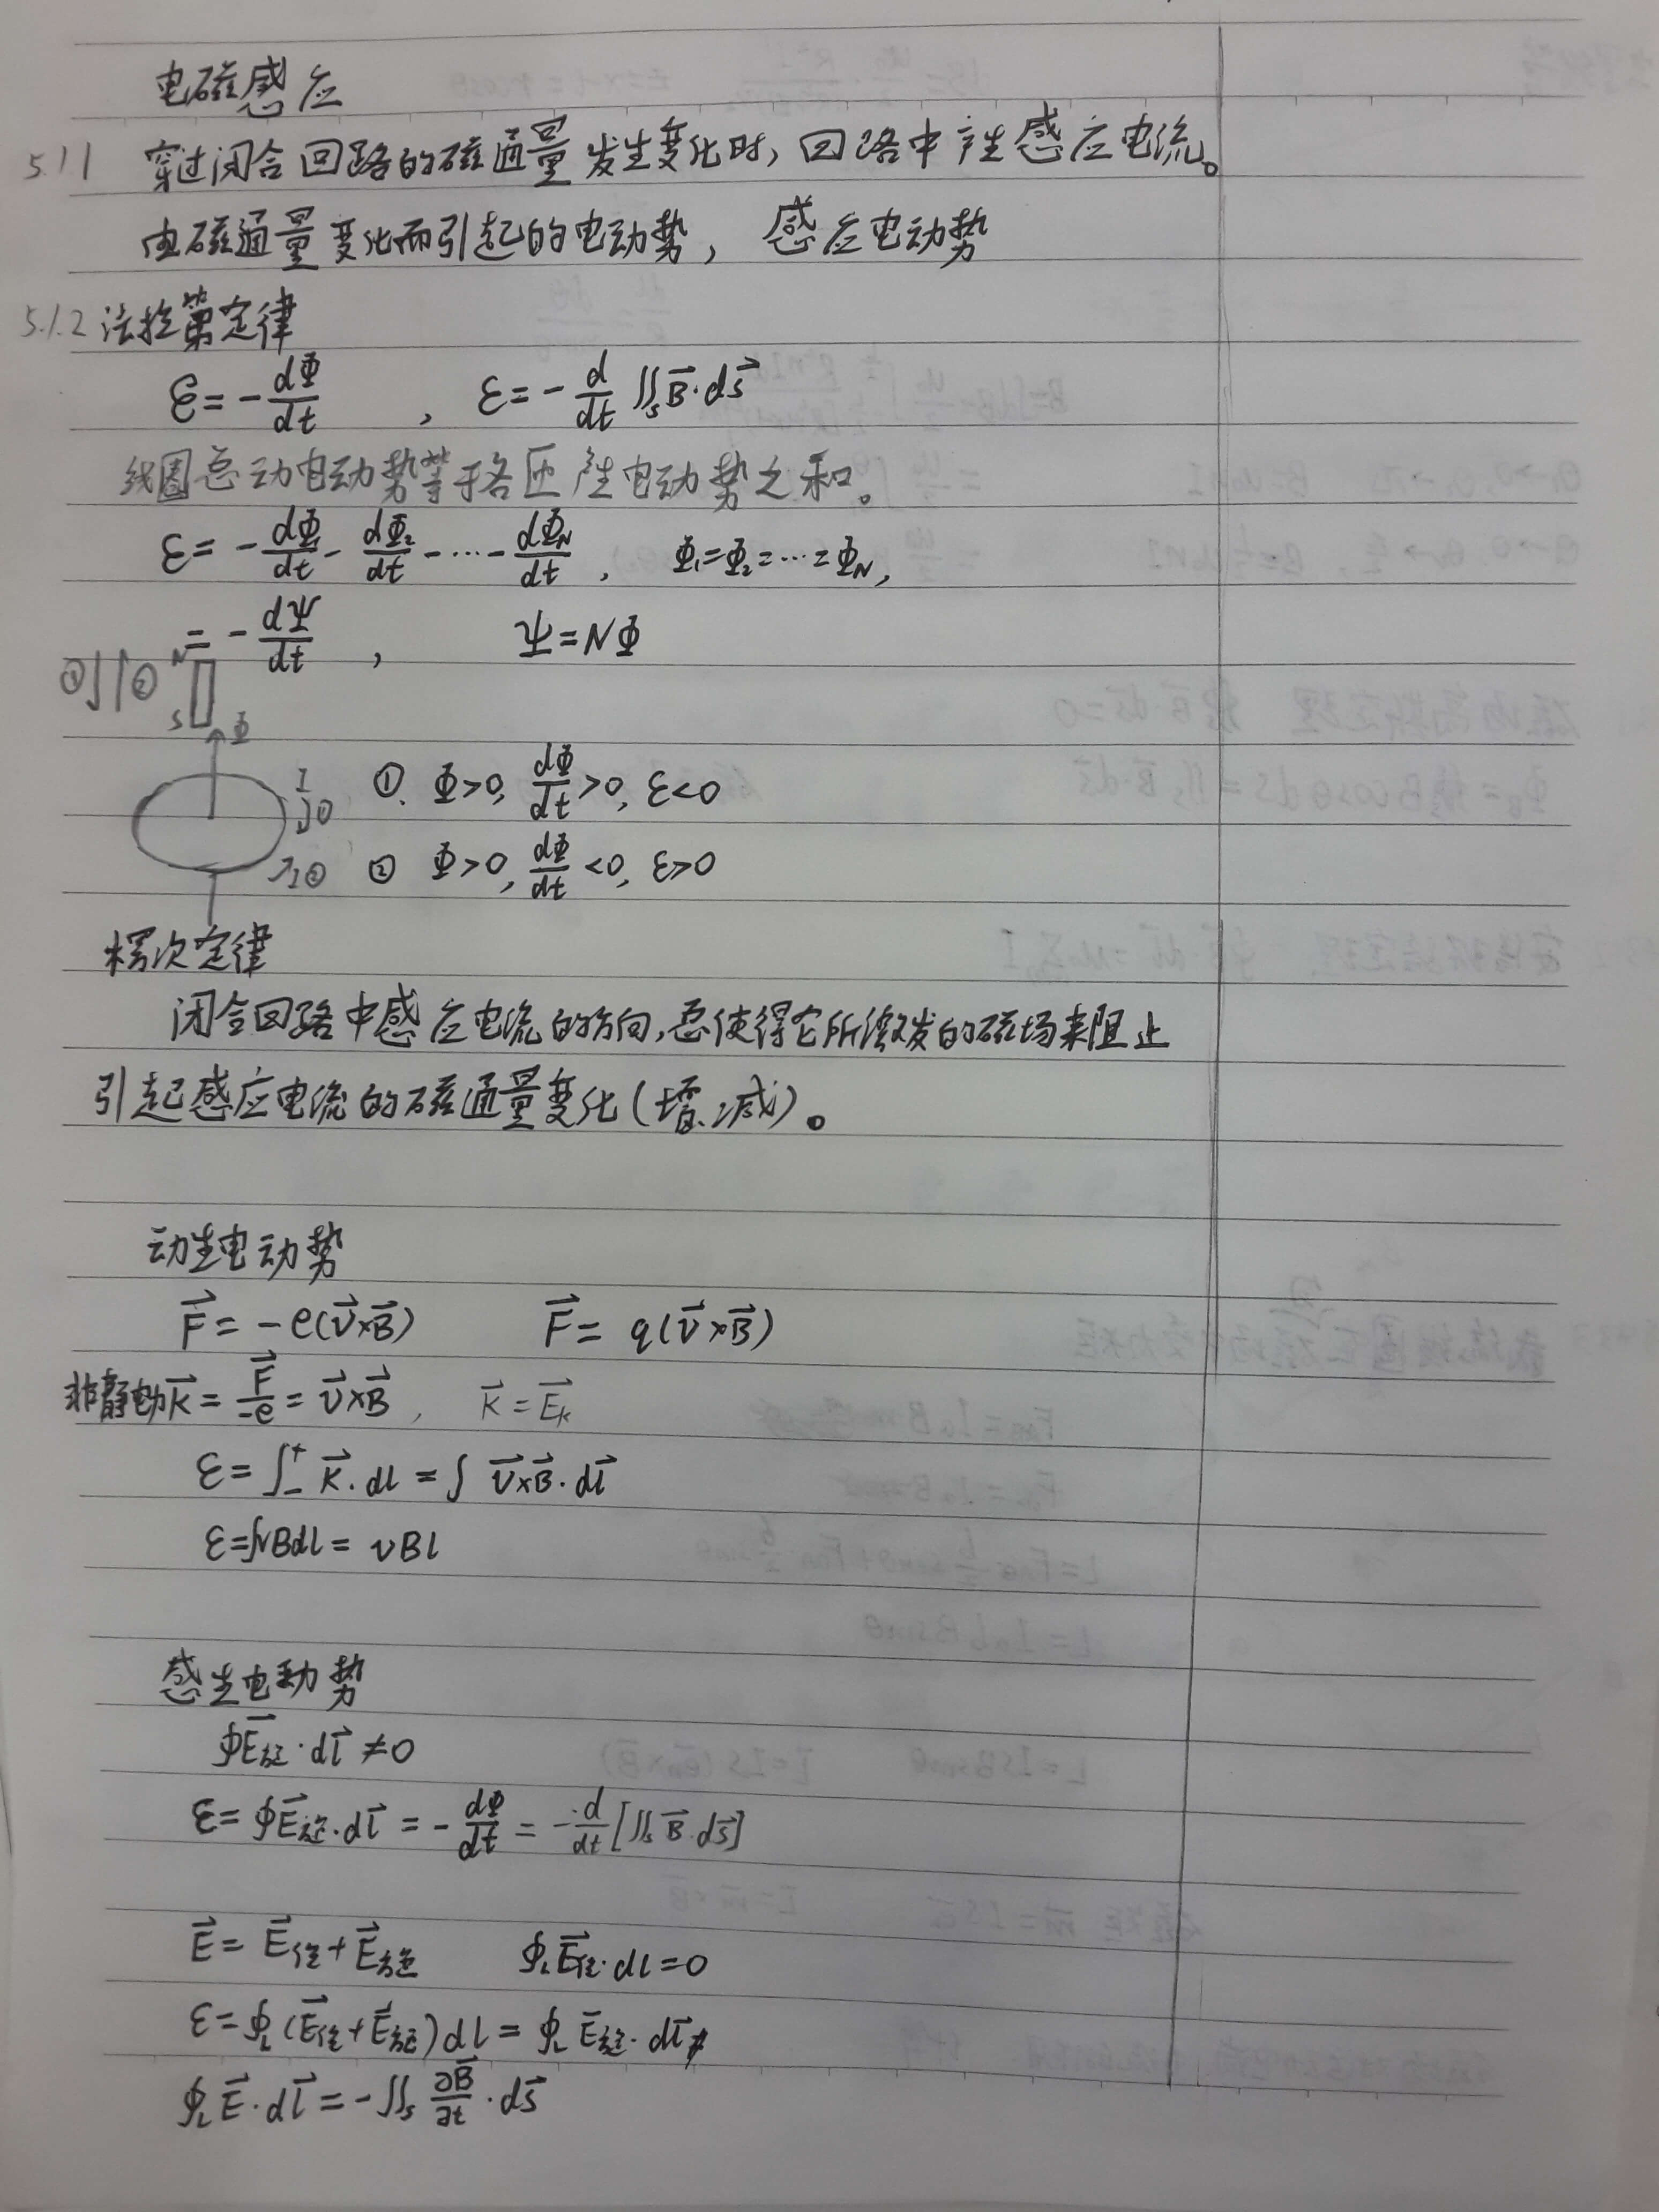 电磁感应
5.1.1 穿过闭合回路的磁通量发生变化时,回路中产生感应电流。
由磁通量变化而引起的电动势,感应电动势
5.1.2 法拉第定律
ε=-dΦ/dt , ε=-d/dt ∬ₛB⃗·ds⃗
线圈总动电动势等于各匝产生电动势之和。
ε=-dΦ₁/dt-dΦ₂/dt-…-dΦN/dt, Φ₁=Φ₂=…=ΦN,
=-dΨ/dt , Ψ=NΦ
①↓↑② N
S Φ
I ①. Φ>0, dΦ/dt>0, ε<0
①
I② ② Φ>0, dΦ/dt<0, ε>0
楞次定律
闭合回路中感应电流的方向,总使得它所激发的磁场来阻止
引起感应电流的磁通量变化(增、减)。
动生电动势
F⃗=-e(v⃗×B⃗) F⃗=q(v⃗×B⃗)
非静电力K⃗=F⃗/-e=v⃗×B⃗, K⃗=E⃗ₖ
ε=∫₋⁺K⃗·dl=∫v⃗×B⃗·dl⃗
ε=∫vBdl=vBl
感生电动势
∮E⃗旋·dl⃗≠0
ε=∮E⃗旋·dl⃗=-dΦ/dt=-d/dt[∬ₛB⃗·ds⃗]
E⃗=E⃗位+E⃗旋 ∮L E⃗位·dl=0
ε=∮L(E⃗位+E⃗旋)dl=∮L E⃗旋·dl⃗
∮L E⃗·dl⃗=-∬ₛ ∂B⃗/∂t·ds⃗